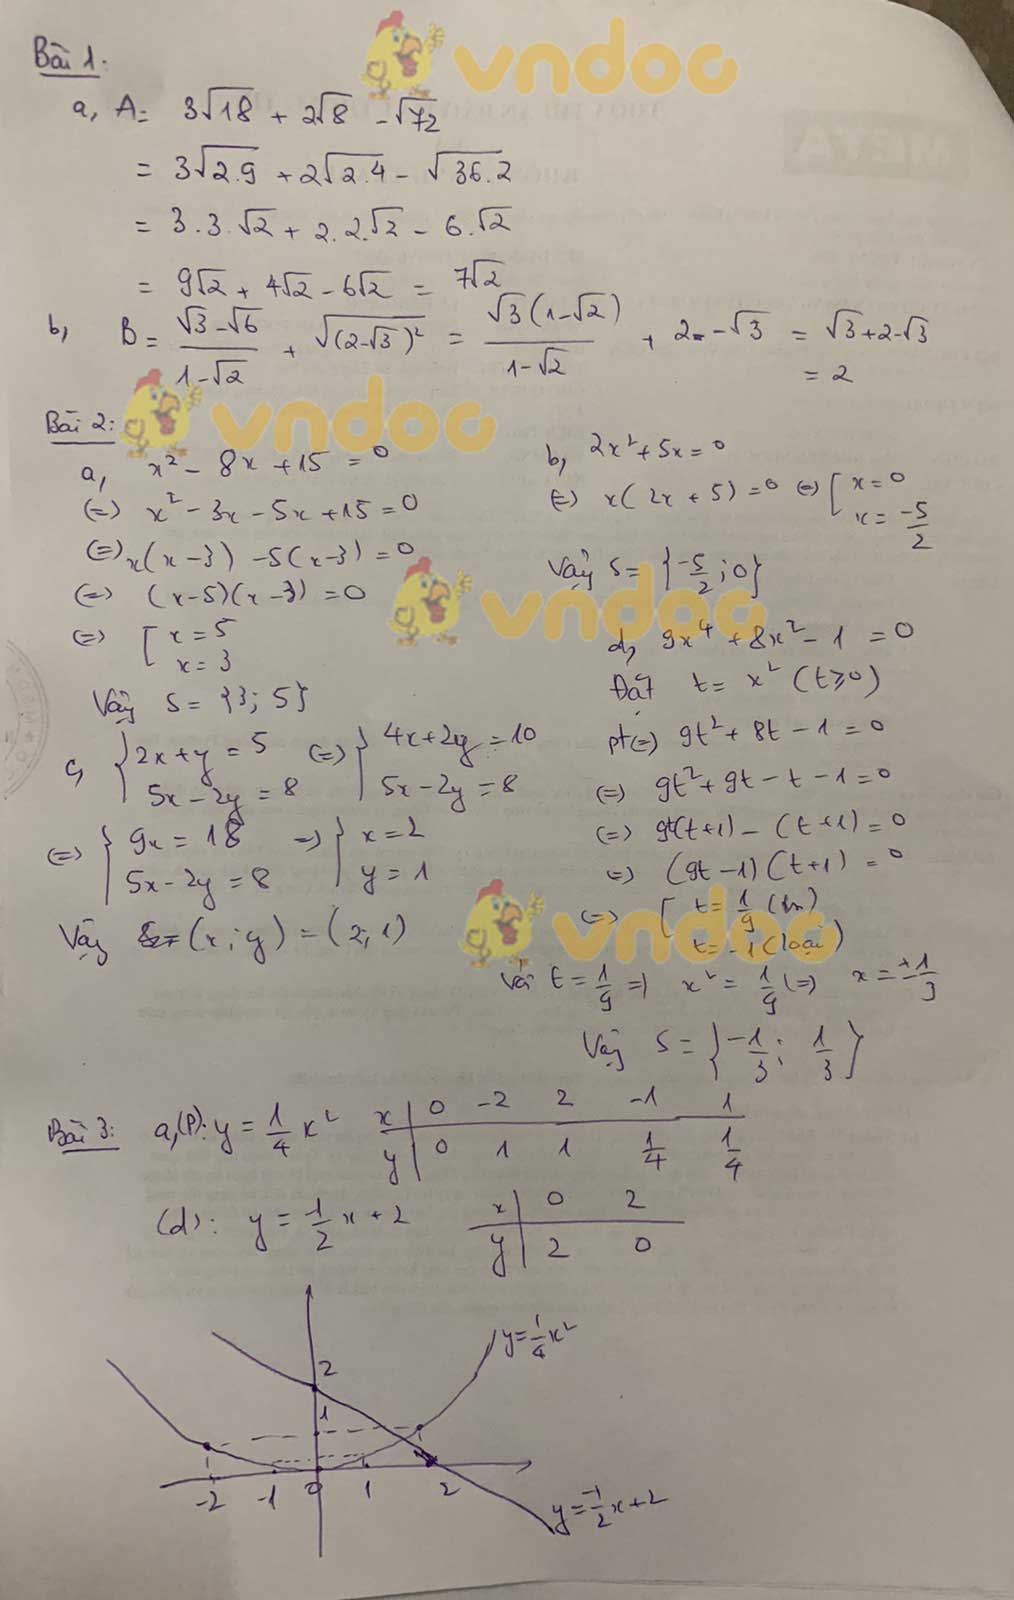 Bài 1:
a, A = 3√18 + 2√8 - √72
= 3√2.9 + 2√2.4 - √36.2
= 3.3.√2 + 2.2.√2 - 6.√2
= 9√2 + 4√2 - 6√2 = 7√2
b, B = (√3 - √6)/(1 - √2) + √(2-√3)² = √3(1-√2)/(1-√2) + 2 - √3 = √3 + 2 - √3
= 2
Bài 2:
a, x² - 8x + 15 = 0
(=) x² - 3x - 5x + 15 = 0
(=) x(x - 3) - 5(x - 3) = 0
(=) (x-5)(x-3) = 0
(=) [ x = 5
x = 3
Vậy S = {3; 5}
b, 2x² + 5x = 0
(=) x(2x + 5) = 0 (=) [ x = 0
x = -5/2
Vậy S = {-5/2; 0}
c, { 2x + y = 5 (=) { 4x + 2y = 10
5x - 2y = 8 5x - 2y = 8
(=) { 9x = 18 =) { x = 2
5x - 2y = 8 y = 1
Vậy (x; y) = (2; 1)
d, 9x⁴ + 8x² - 1 = 0
Đặt t = x² (t ≥ 0)
pt (=) 9t² + 8t - 1 = 0
(=) 9t² + 9t - t - 1 = 0
(=) 9t(t+1) - (t+1) = 0
(=) (9t - 1)(t+1) = 0
(=) [ t = 1/9 (tm)
t = -1 (loại)
Với t = 1/9 =) x² = 1/9 (=) x = ±1/3
Vậy S = {-1/3; 1/3}
Bài 3: a, (P): y = 1/4 x²
x | 0 -2 2 -1 1
y | 0 1 1 1/4 1/4
(d): y = -1/2 x + 2
x | 0 2
y | 2 0
y = 1/4 x²
2
1
-2 -1 0 1 2
y = -1/2 x + 2
vndoc
vndoc
vndoc
vndoc
META